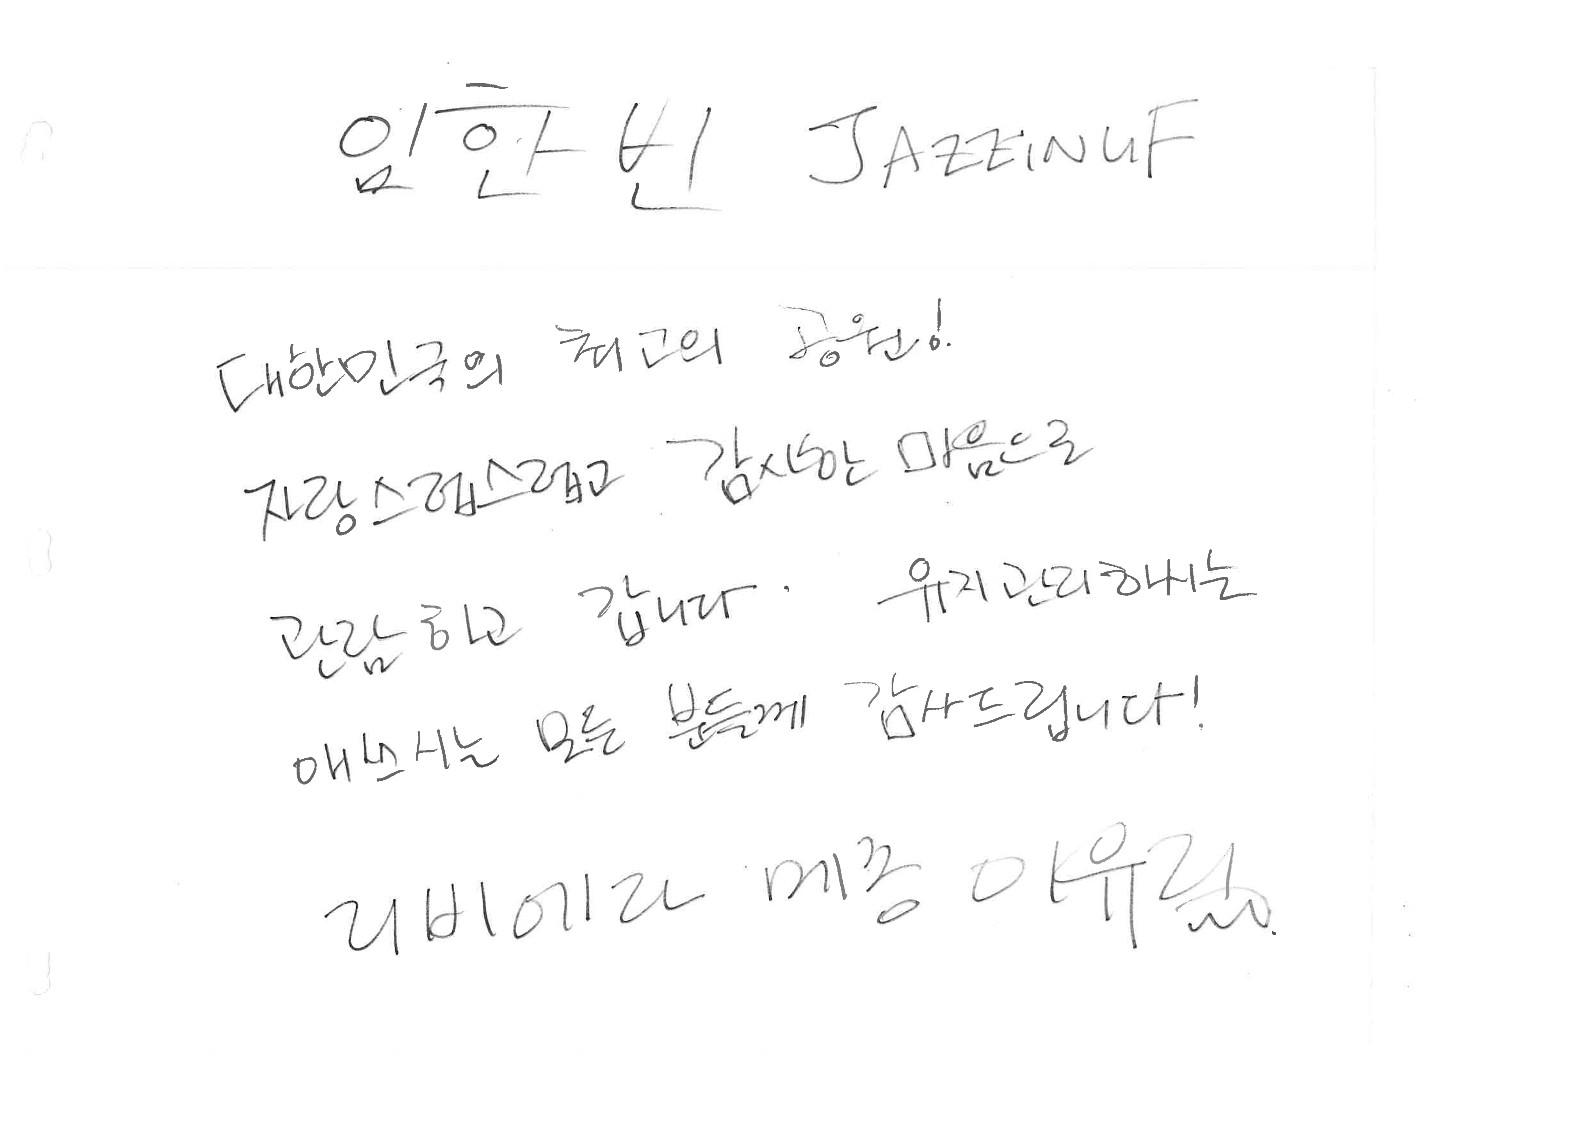 임한빈 JAZZINUF
대한민국의 최고의 공원!
자랑스럽스럽고 감사한 마음으로
관람하고 갑니다. 유지관리하시는
애쓰시는 모든 분들께 감사드립니다!
리비에라 메종